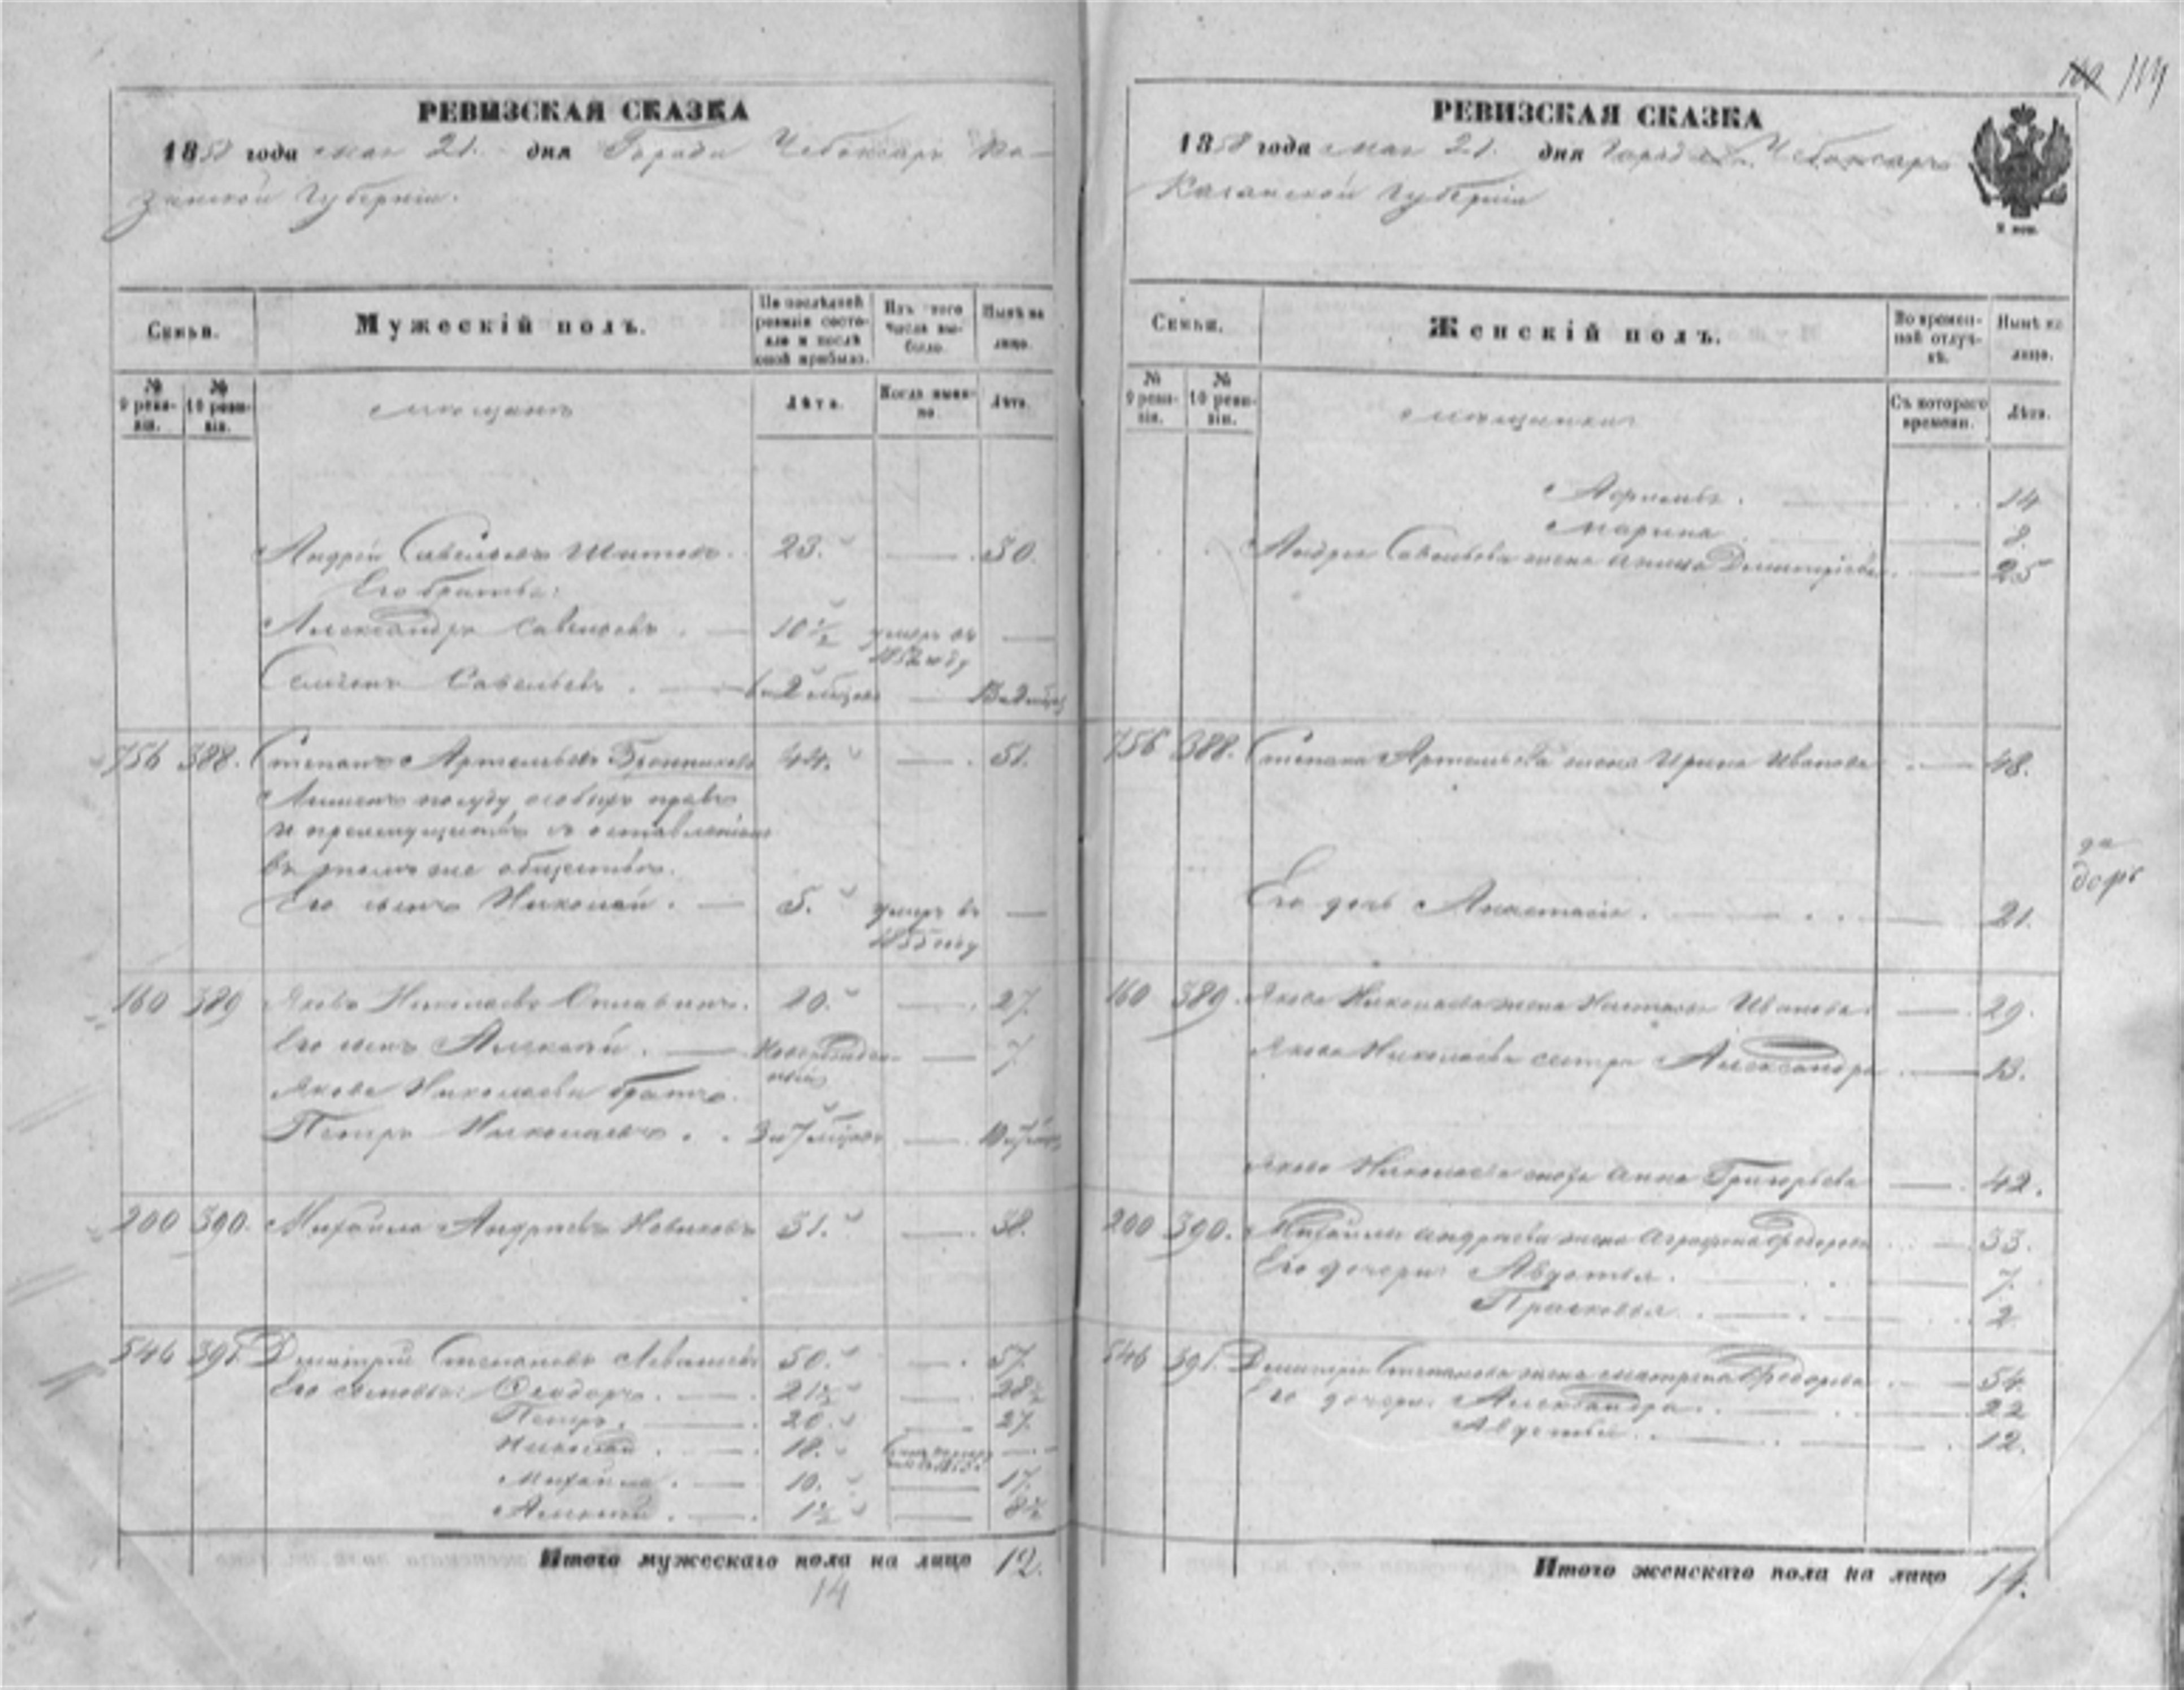 РЕВИЗСКАЯ СКАЗКА
1858 года мая 21. дня Города Чебоксаръ Ка-
занской Губернiи.
Семьи.
Мужескiй полъ.
По послѣдней ревизiи состояло и послѣ оной прибыло.
Изъ того числа выбыло.
Нынѣ на лицо.
№ 9 ревизiи.
№ 10 ревизiи.
мѣщанъ
Лѣта.
Когда именно.
Лѣта.
Андрей Савельевъ 23. 30.
Его братья:
Александръ Савельевъ 10 1/2 умеръ въ
1852 году
Семенъ Савельевъ
756 388. Степанъ Артемьевъ Бронниковъ 44. 51.
Лишенъ по суду особыхъ правъ
и преимуществъ съ оставленiемъ
въ томъ же обществѣ.
Его сынъ Николай. 5. умеръ въ
1855 году
160 389 Яковъ Николаевъ 20. 27.
Его сынъ Алексѣй. Новорожден-
ный 7
Якова Николаева братъ.
Петръ Николаевъ. 3 и 7 мѣсяцовъ
200 390. Михайло Андреевъ Новиковъ 31. 38.
546 391. Дмитрiй Степановъ 50. 57.
Его сыновья: Феодоръ. 21 1/2 28 1/2
Петръ. 20. 27.
Николай. 18.
Михайло. 10. 17.
Алексѣй. 1 1/2 8 1/2
Итого мужескаго пола на лицо 12.
14
114
РЕВИЗСКАЯ СКАЗКА
1858 года мая 21. дня Города Чебоксаръ
Казанской Губернiи
Семьи.
Женскiй полъ.
Во временной отлучкѣ.
Нынѣ на лицо.
№ 9 ревизiи.
№ 10 ревизiи.
мѣщанки
Съ котораго времени.
Лѣта.
14
Марина 8.
Андрея Савельева жена Анна Дмитрiева. 25
756 388. Степана Артемьева жена Ирина Иванова 48.
Его дочь Анастасiя. 21.
160 389. Якова Николаева жена Наталья Иванова 29.
Якова Николаева сестра Александра 13.
Якова Николаева Анна Григорьева 42.
200 390. Михайлы Андреева жена Аграфена Федорова 33.
Его дочери: Авдотья. 7.
Прасковья. 2
546 391. Дмитрiя Степанова жена Матрена Федорова 54.
Его дочери. Александра. 22
Авдотья. 12.
Итого женскаго пола на лицо 14.